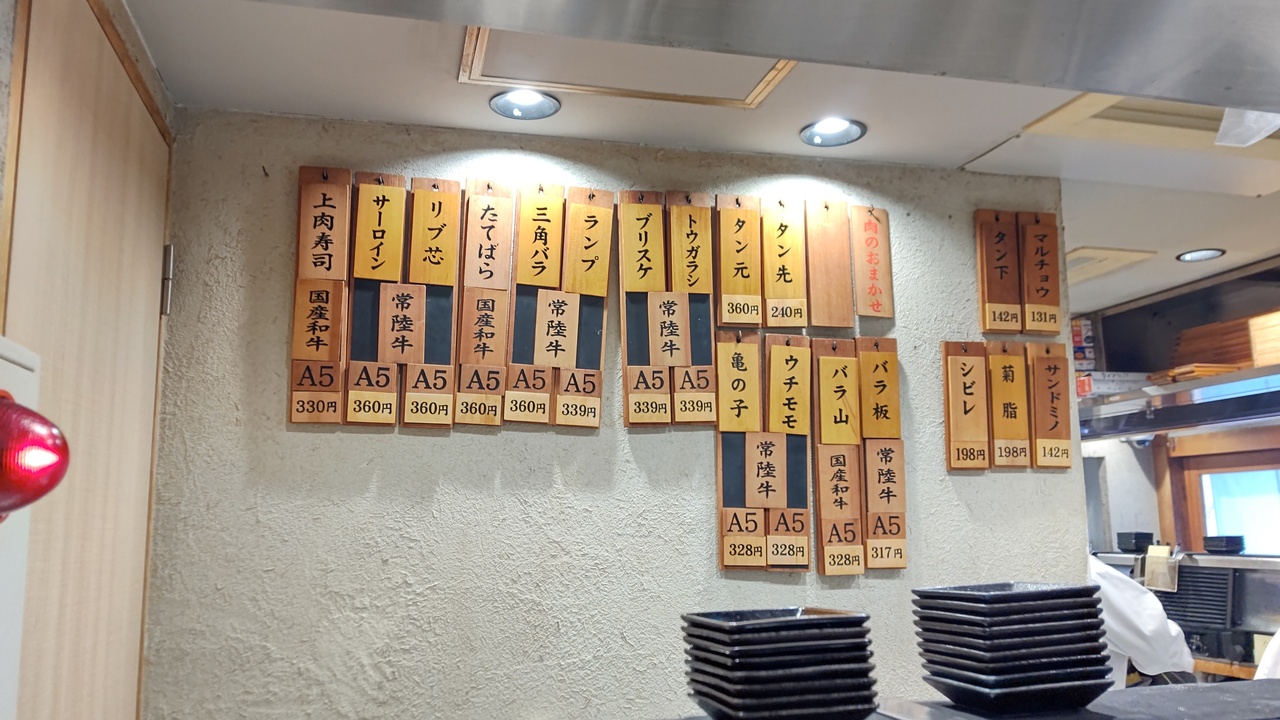 上肉寿司
国産和牛
A5
330円
サーロイン
リブ芯
常陸牛
A5
360円
A5
360円
たてばら
国産和牛
A5
360円
三角バラ
ランプ
常陸牛
A5
360円
A5
339円
ブリスケ
トウガラシ
常陸牛
A5
339円
A5
339円
タン元
360円
タン先
240円
肉のおまかせ
亀の子
ウチモモ
常陸牛
A5
328円
A5
328円
バラ山
国産和牛
A5
328円
バラ板
常陸牛
A5
317円
タン下
142円
マルチョウ
131円
シビレ
198円
菊脂
198円
サンドミノ
142円